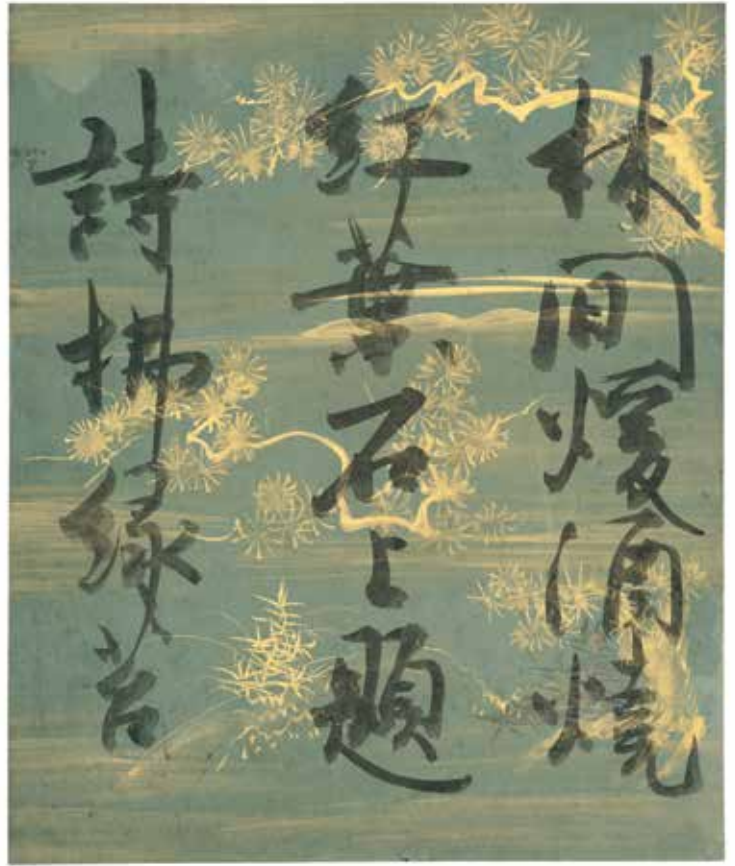 林間煖酒燒
紅葉石上題
詩拂緑苔